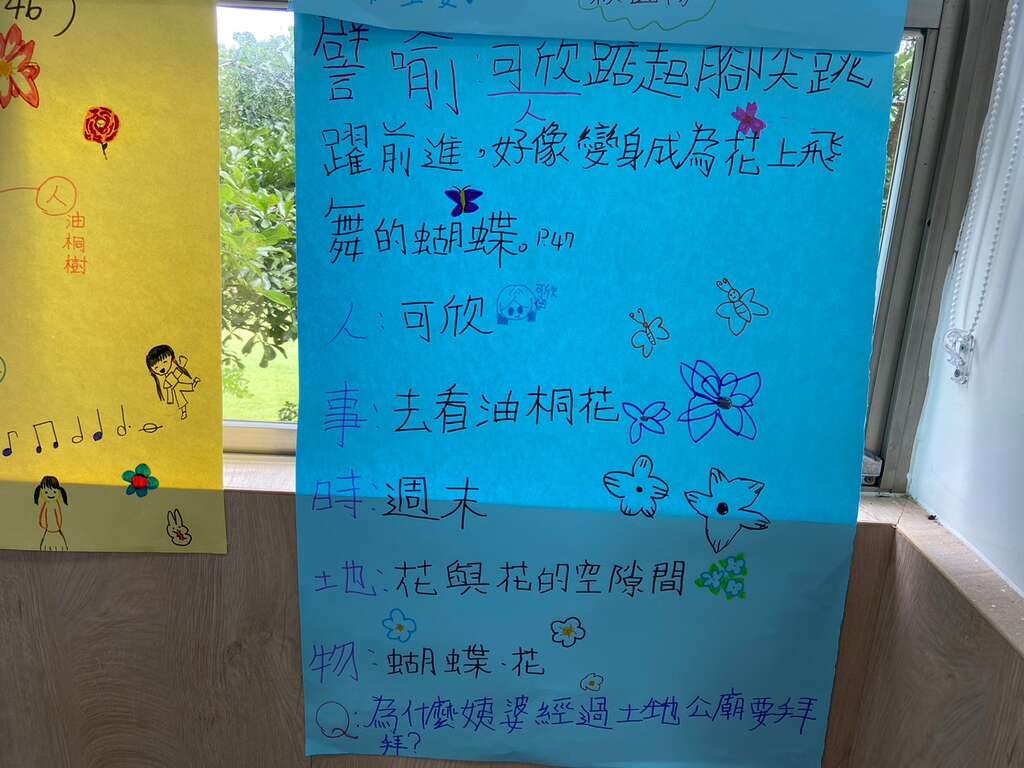 46)
人
油
桐
樹
譬喻:可欣踮起腳尖跳
人
躍前進,好像變身成為花上飛
舞的蝴蝶。P.47
人:可欣
可欣
事:去看油桐花
時:週末
土地:花與花的空隙間
物:蝴蝶、花
Q:為什麼姨婆經過土地公廟要拜
拜?